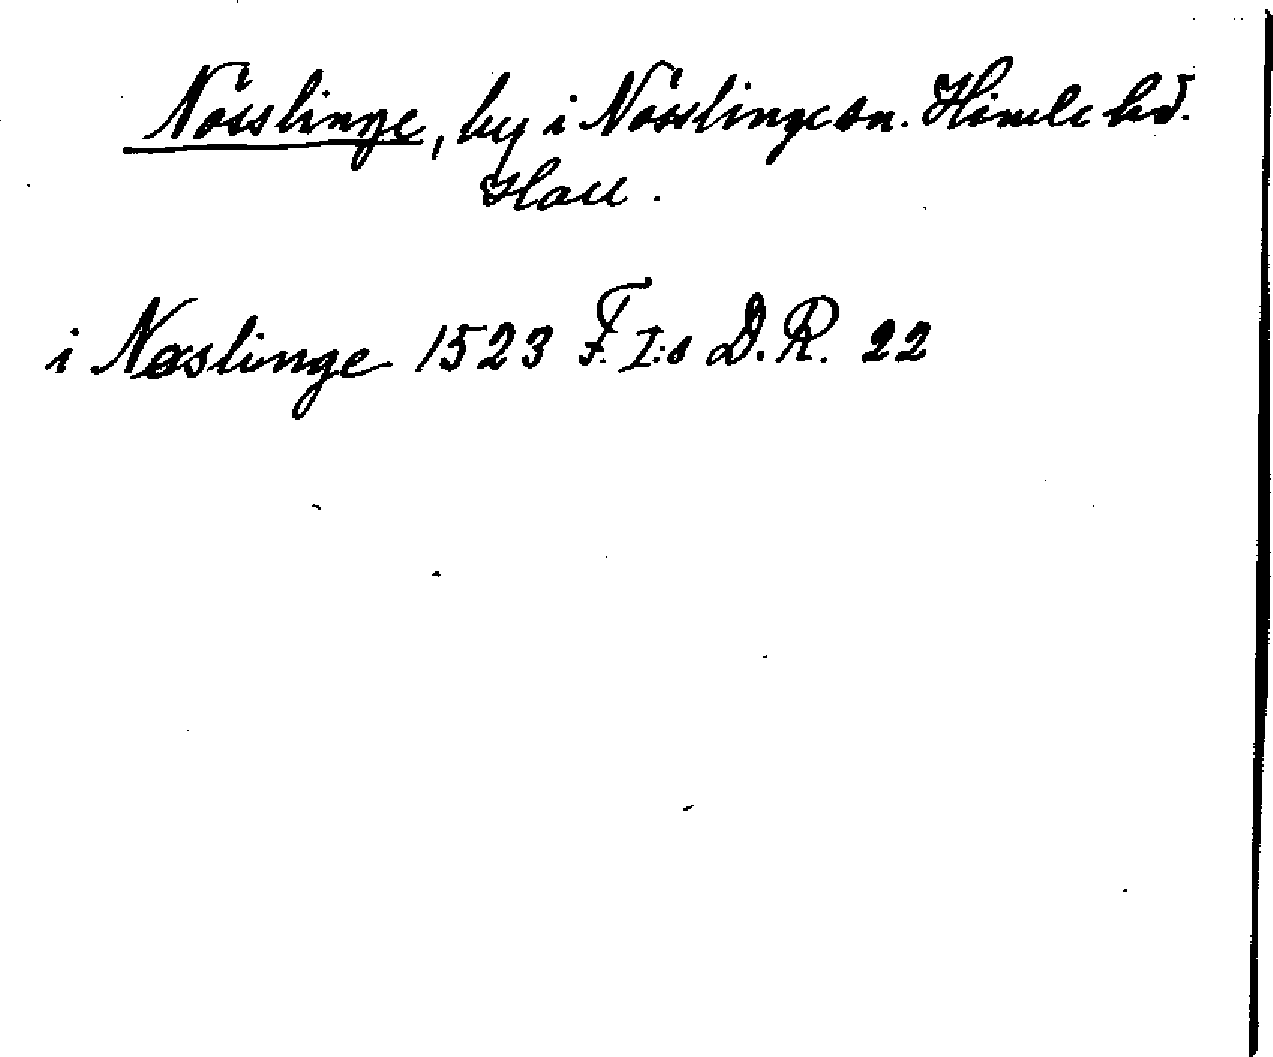 Nösslinge, by i Nösslinge sn. Himle hd.
Hall.
i Nøslinge 1523 F. I:s D.R. 22